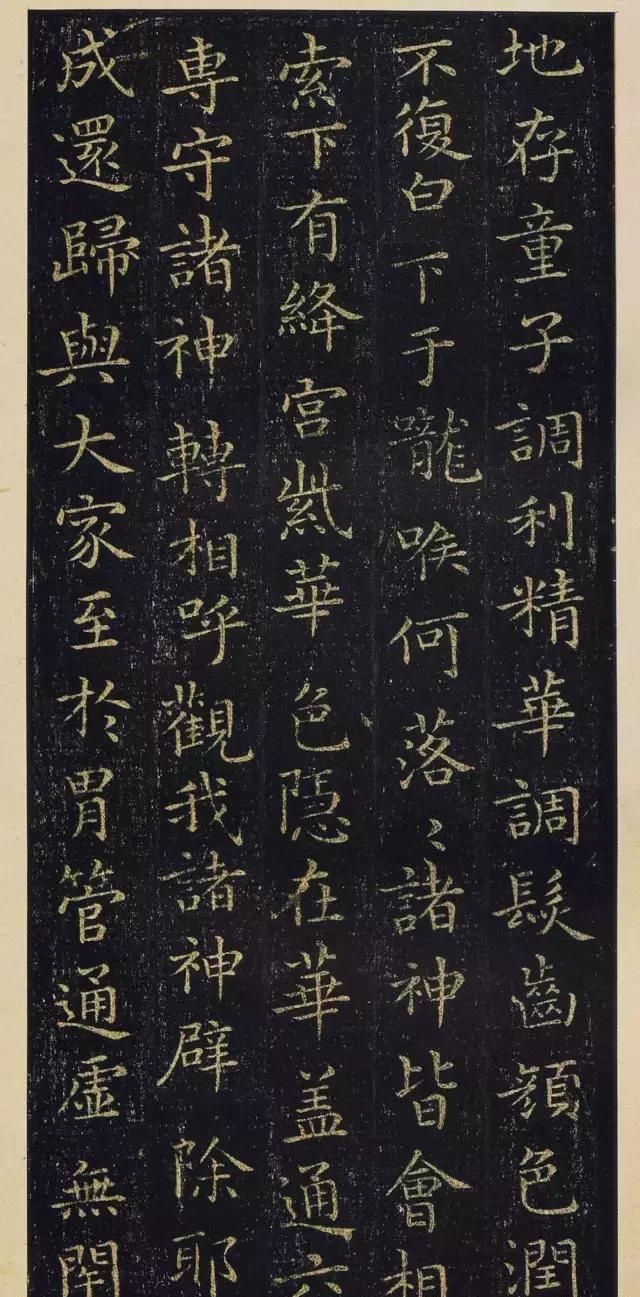 地存童子調利精華調髮齒顏色潤
不復白下于嚨喉何落〻諸神皆會相
索下有絳宮紫華色隱在華盖通六
専守諸神轉相呼觀我諸神辟除耶
成還歸與大家至於胃管通虛無閉